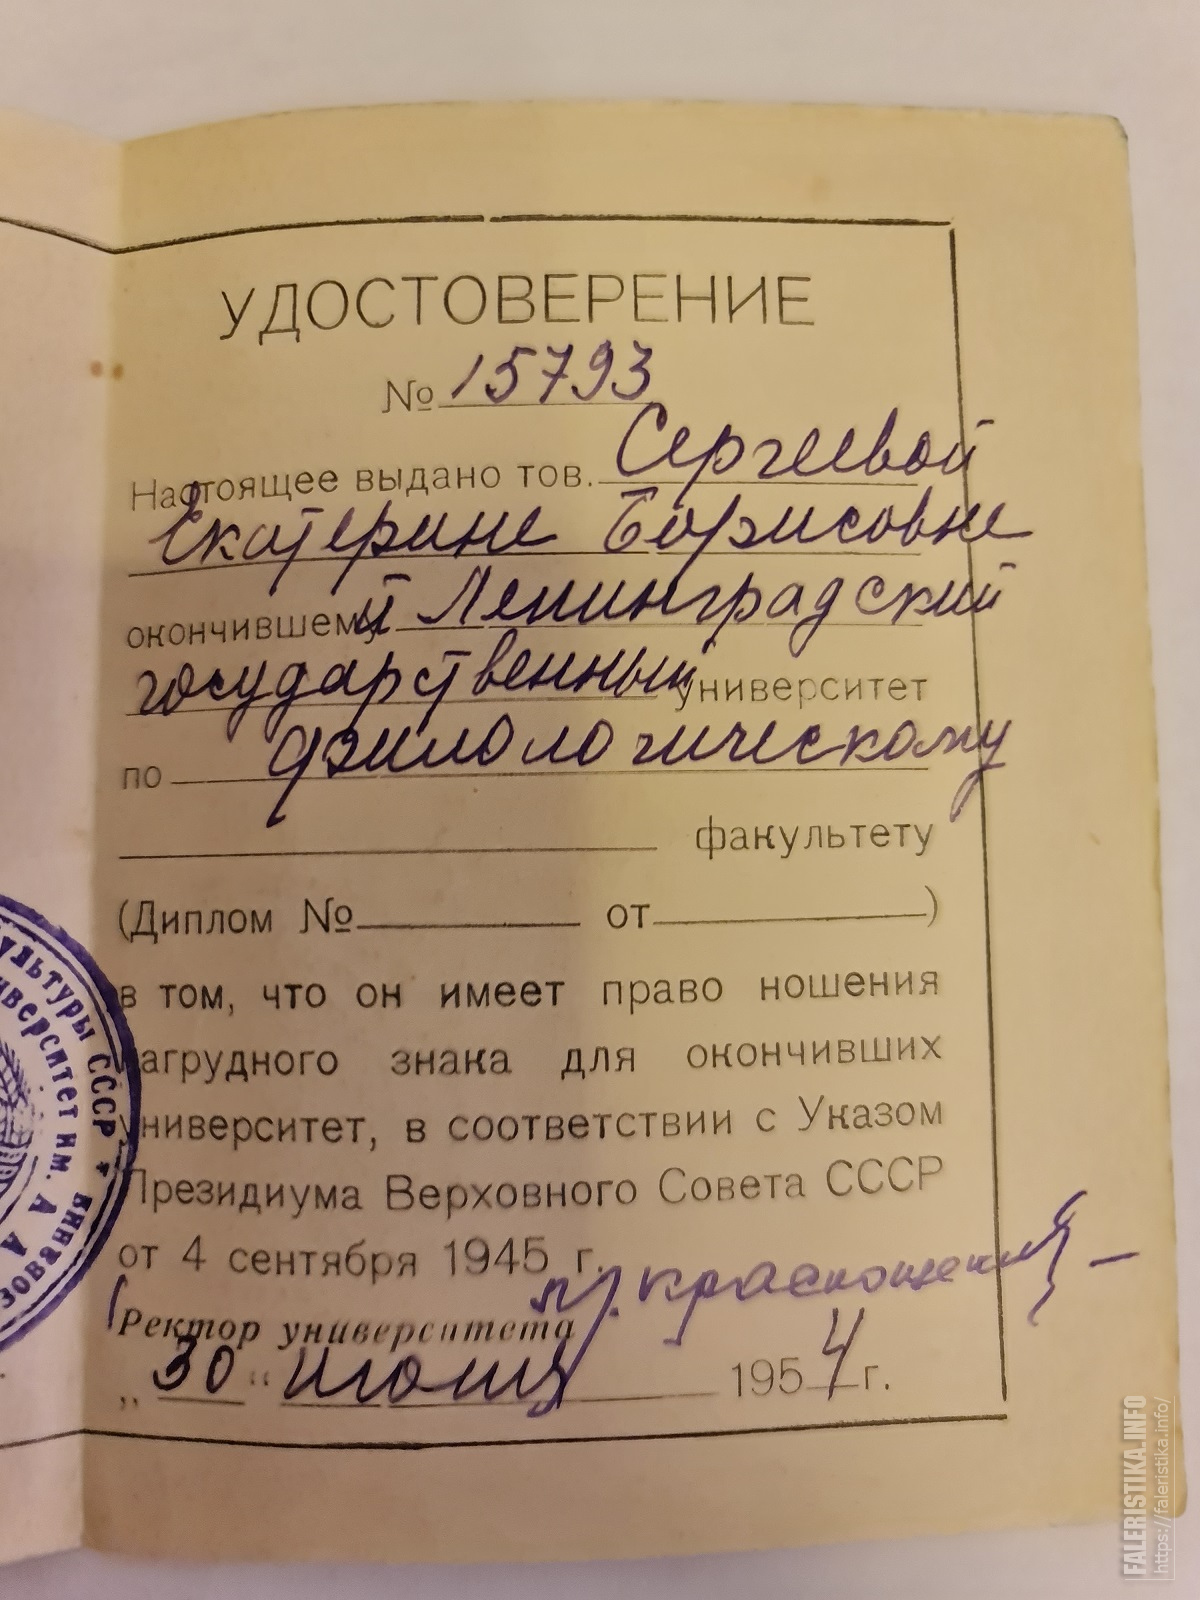 УДОСТОВЕРЕНИЕ
№ 15793
Настоящее выдано тов. Сергеевой
Екатерине Борисовне
окончившему й Ленинградский
государственный университет
по филологическому
факультету
(Диплом № от )
в том, что он имеет право ношения
нагрудного знака для окончивших
университет, в соответствии с Указом
Президиума Верховного Совета СССР
от 4 сентября 1945 г.
Ректор университета
„30“ июня 1954 г.
ультуры СССР *
иверситет им. А. А.
FALERISTIKA.INFO
https://faleristika.info/